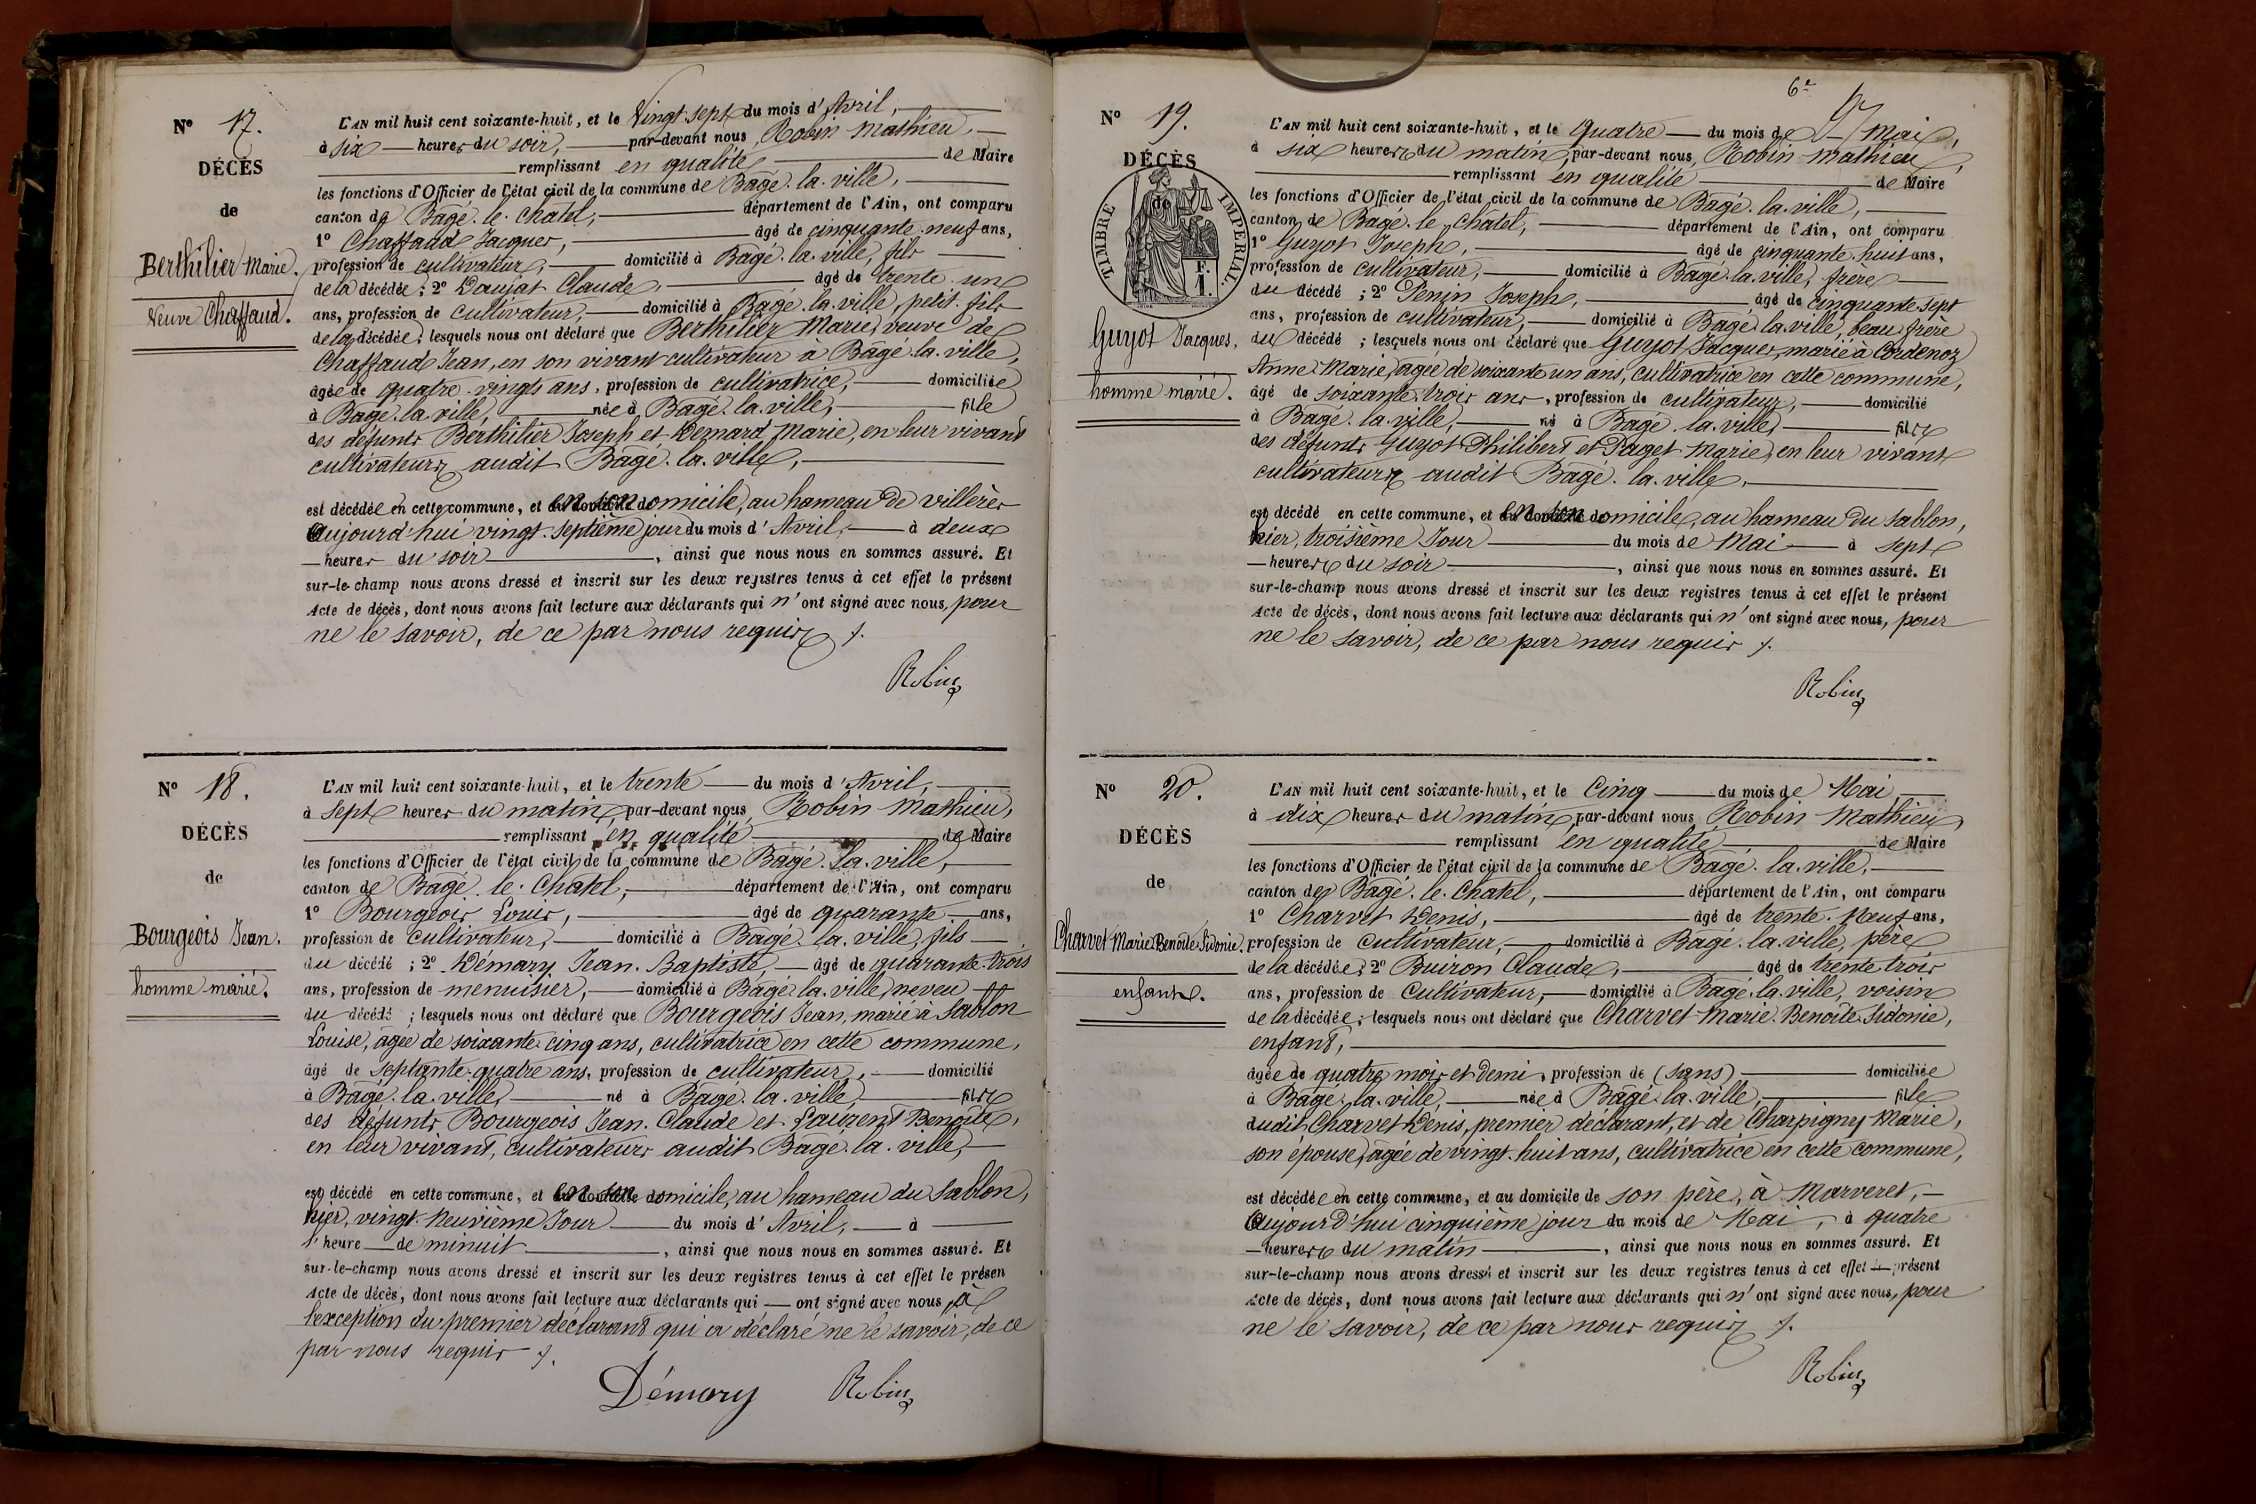 N° 17.
DÉCÈS
de
Berthilier Marie.
Veuve Chaffaud.
L'AN mil huit cent soixante-huit, et le Vingt-sept du mois d'Avril,
à six heures du soir, par-devant nous Robin Mathieu,
remplissant en qualité de Maire
les fonctions d'Officier de l'état civil de la commune de Bâgé-la-ville,
canton de Bâgé-le-Chatel, département de l'Ain, ont comparu
1° Chaffaud Jacques, âgé de cinquante-neuf ans,
profession de cultivateur, domicilié à Bâgé-la-ville, fils
de la décédée ; 2° Daujat Claude, âgé de trente-un
ans, profession de cultivateur, domicilié à Bâgé-la-ville, petit-fils
de la décédée ; lesquels nous ont déclaré que Berthilier Marie, veuve de
Chaffaud Jean, en son vivant cultivateur à Bâgé-la-ville,
âgée de quatre-vingts ans, profession de cultivatrice, domiciliée
à Bâgé-la-ville, née à Bâgé-la-ville, fille
des défunts Berthilier Joseph et Demard Marie, en leur vivant
cultivateurs audit Bâgé-la-ville,
est décédée en cette commune, et en son domicile, au hameau de villerès
Aujourd'hui vingt-septième jour du mois d'Avril, à deux
heures du soir, ainsi que nous nous en sommes assuré. Et
sur-le-champ nous avons dressé et inscrit sur les deux registres tenus à cet effet le présent
Acte de décès, dont nous avons fait lecture aux déclarants qui n'ont signé avec nous, pour
ne le savoir, de ce par nous requis /.
Robin
N° 18.
DÉCÈS
de
Bourgeois Jean.
homme marié.
L'AN mil huit cent soixante-huit, et le trente du mois d'Avril,
à sept heures du matin, par-devant nous Robin Mathieu,
remplissant en qualité de Maire
les fonctions d'Officier de l'état civil de la commune de Bâgé-la-ville,
canton de Bâgé-le-Chatel, département de l'Ain, ont comparu
1° Bourgeois Louis, âgé de quarante ans,
profession de cultivateur, domicilié à Bâgé-la-ville, fils
du décédé ; 2° Démary Jean-Baptiste, âgé de quarante-trois
ans, profession de menuisier, domicilié à Bâgé-la-ville, neveu
du décédé ; lesquels nous ont déclaré que Bourgeois Jean, marié à Sablon
Louise, âgée de soixante-cinq ans, cultivatrice en cette commune,
âgé de septante-quatre ans, profession de cultivateur, domicilié
à Bâgé-la-ville, né à Bâgé-la-ville, fils
des défunts Bourgeois Jean-Claude et Laurent Benoîte,
en leur vivant, cultivateurs audit Bâgé-la-ville,
est décédé en cette commune, et en son domicile, au hameau du Sablon,
hier, vingt-neuvième Jour du mois d'Avril, à
l'heure de minuit, ainsi que nous nous en sommes assuré. Et
sur-le-champ nous avons dressé et inscrit sur les deux registres tenus à cet effet le présen
Acte de décès, dont nous avons fait lecture aux déclarants qui ont signé avec nous, à
l'exception du premier déclarant qui a déclaré ne le savoir, de ce
par nous requis /.
Démary Robin
6e
N° 19.
DÉCÈS
de
TIMBRE IMPERIAL.
F.
1.
Guyot Jacques.
homme marié.
L'AN mil huit cent soixante-huit, et le quatre du mois de Mai,
à six heures du matin, par-devant nous, Robin Mathieu,
remplissant en qualité de Maire
les fonctions d'Officier de l'état civil de la commune de Bâgé-la-ville,
canton de Bâgé-le-Chatel, département de l'Ain, ont comparu
1° Guyot Joseph, âgé de cinquante-huit ans,
profession de cultivateur, domicilié à Bâgé-la-ville, frère
du décédé ; 2° Penin Joseph, âgé de cinquante-sept
ans, profession de cultivateur, domicilié à Bâgé-la-ville, beau-frère
du décédé ; lesquels nous ont déclaré que Guyot Jacques, marié à Cordenoz
Anne Marie, âgée de soixante un ans, cultivatrice en cette commune,
âgé de soixante-trois ans, profession de cultivateur, domicilié
à Bâgé-la-ville, né à Bâgé-la-ville, fils
des défunts Guyot Philibert et Paget Marie, en leur vivant
cultivateurs audit Bâgé-la-ville,
est décédé en cette commune, et en son domicile, au hameau du Sablon,
hier, troisième Jour du mois de Mai à sept
heures du soir, ainsi que nous nous en sommes assuré. Et
sur-le-champ nous avons dressé et inscrit sur les deux registres tenus à cet effet le présent
Acte de décès, dont nous avons fait lecture aux déclarants qui n'ont signé avec nous, pour
ne le savoir, de ce par nous requis /.
Robin
N° 20.
DÉCÈS
de
Charvet Marie-Benoîte-Sidonie.
enfant.
L'AN mil huit cent soixante-huit, et le Cinq du mois de Mai
à dix heures du matin, par-devant nous Robin Mathieu,
remplissant en qualité de Maire
les fonctions d'Officier de l'état civil de la commune de Bâgé-la-ville,
canton de Bâgé-le-Chatel, département de l'Ain, ont comparu
1° Charvet Denis, âgé de trente-Neuf ans,
profession de cultivateur, domicilié à Bâgé-la-ville, père
de la décédée ; 2° Buiron Claude, âgé de trente-trois
ans, profession de Cultivateur, domicilié à Bâgé-la-ville, voisin
de la décédée ; lesquels nous ont déclaré que Charvet Marie-Benoîte-Sidonie,
enfant,
âgée de quatre mois et demi, profession de (sans) domiciliée
à Bâgé-la-ville, née à Bâgé-la-ville, fille
dudit Charvet Denis, premier déclarant, et de Charpigny Marie,
son épouse, âgée de vingt-huit ans, cultivatrice en cette commune,
est décédée en cette commune, et au domicile de son père, à Marveret,
Aujourd'hui cinquième jour du mois de Mai, à quatre
heures du matin, ainsi que nous nous en sommes assuré. Et
sur-le-champ nous avons dressé et inscrit sur les deux registres tenus à cet effet le présent
Acte de décès, dont nous avons fait lecture aux déclarants qui n'ont signé avec nous, pour
ne le savoir, de ce par nous requis /.
Robin